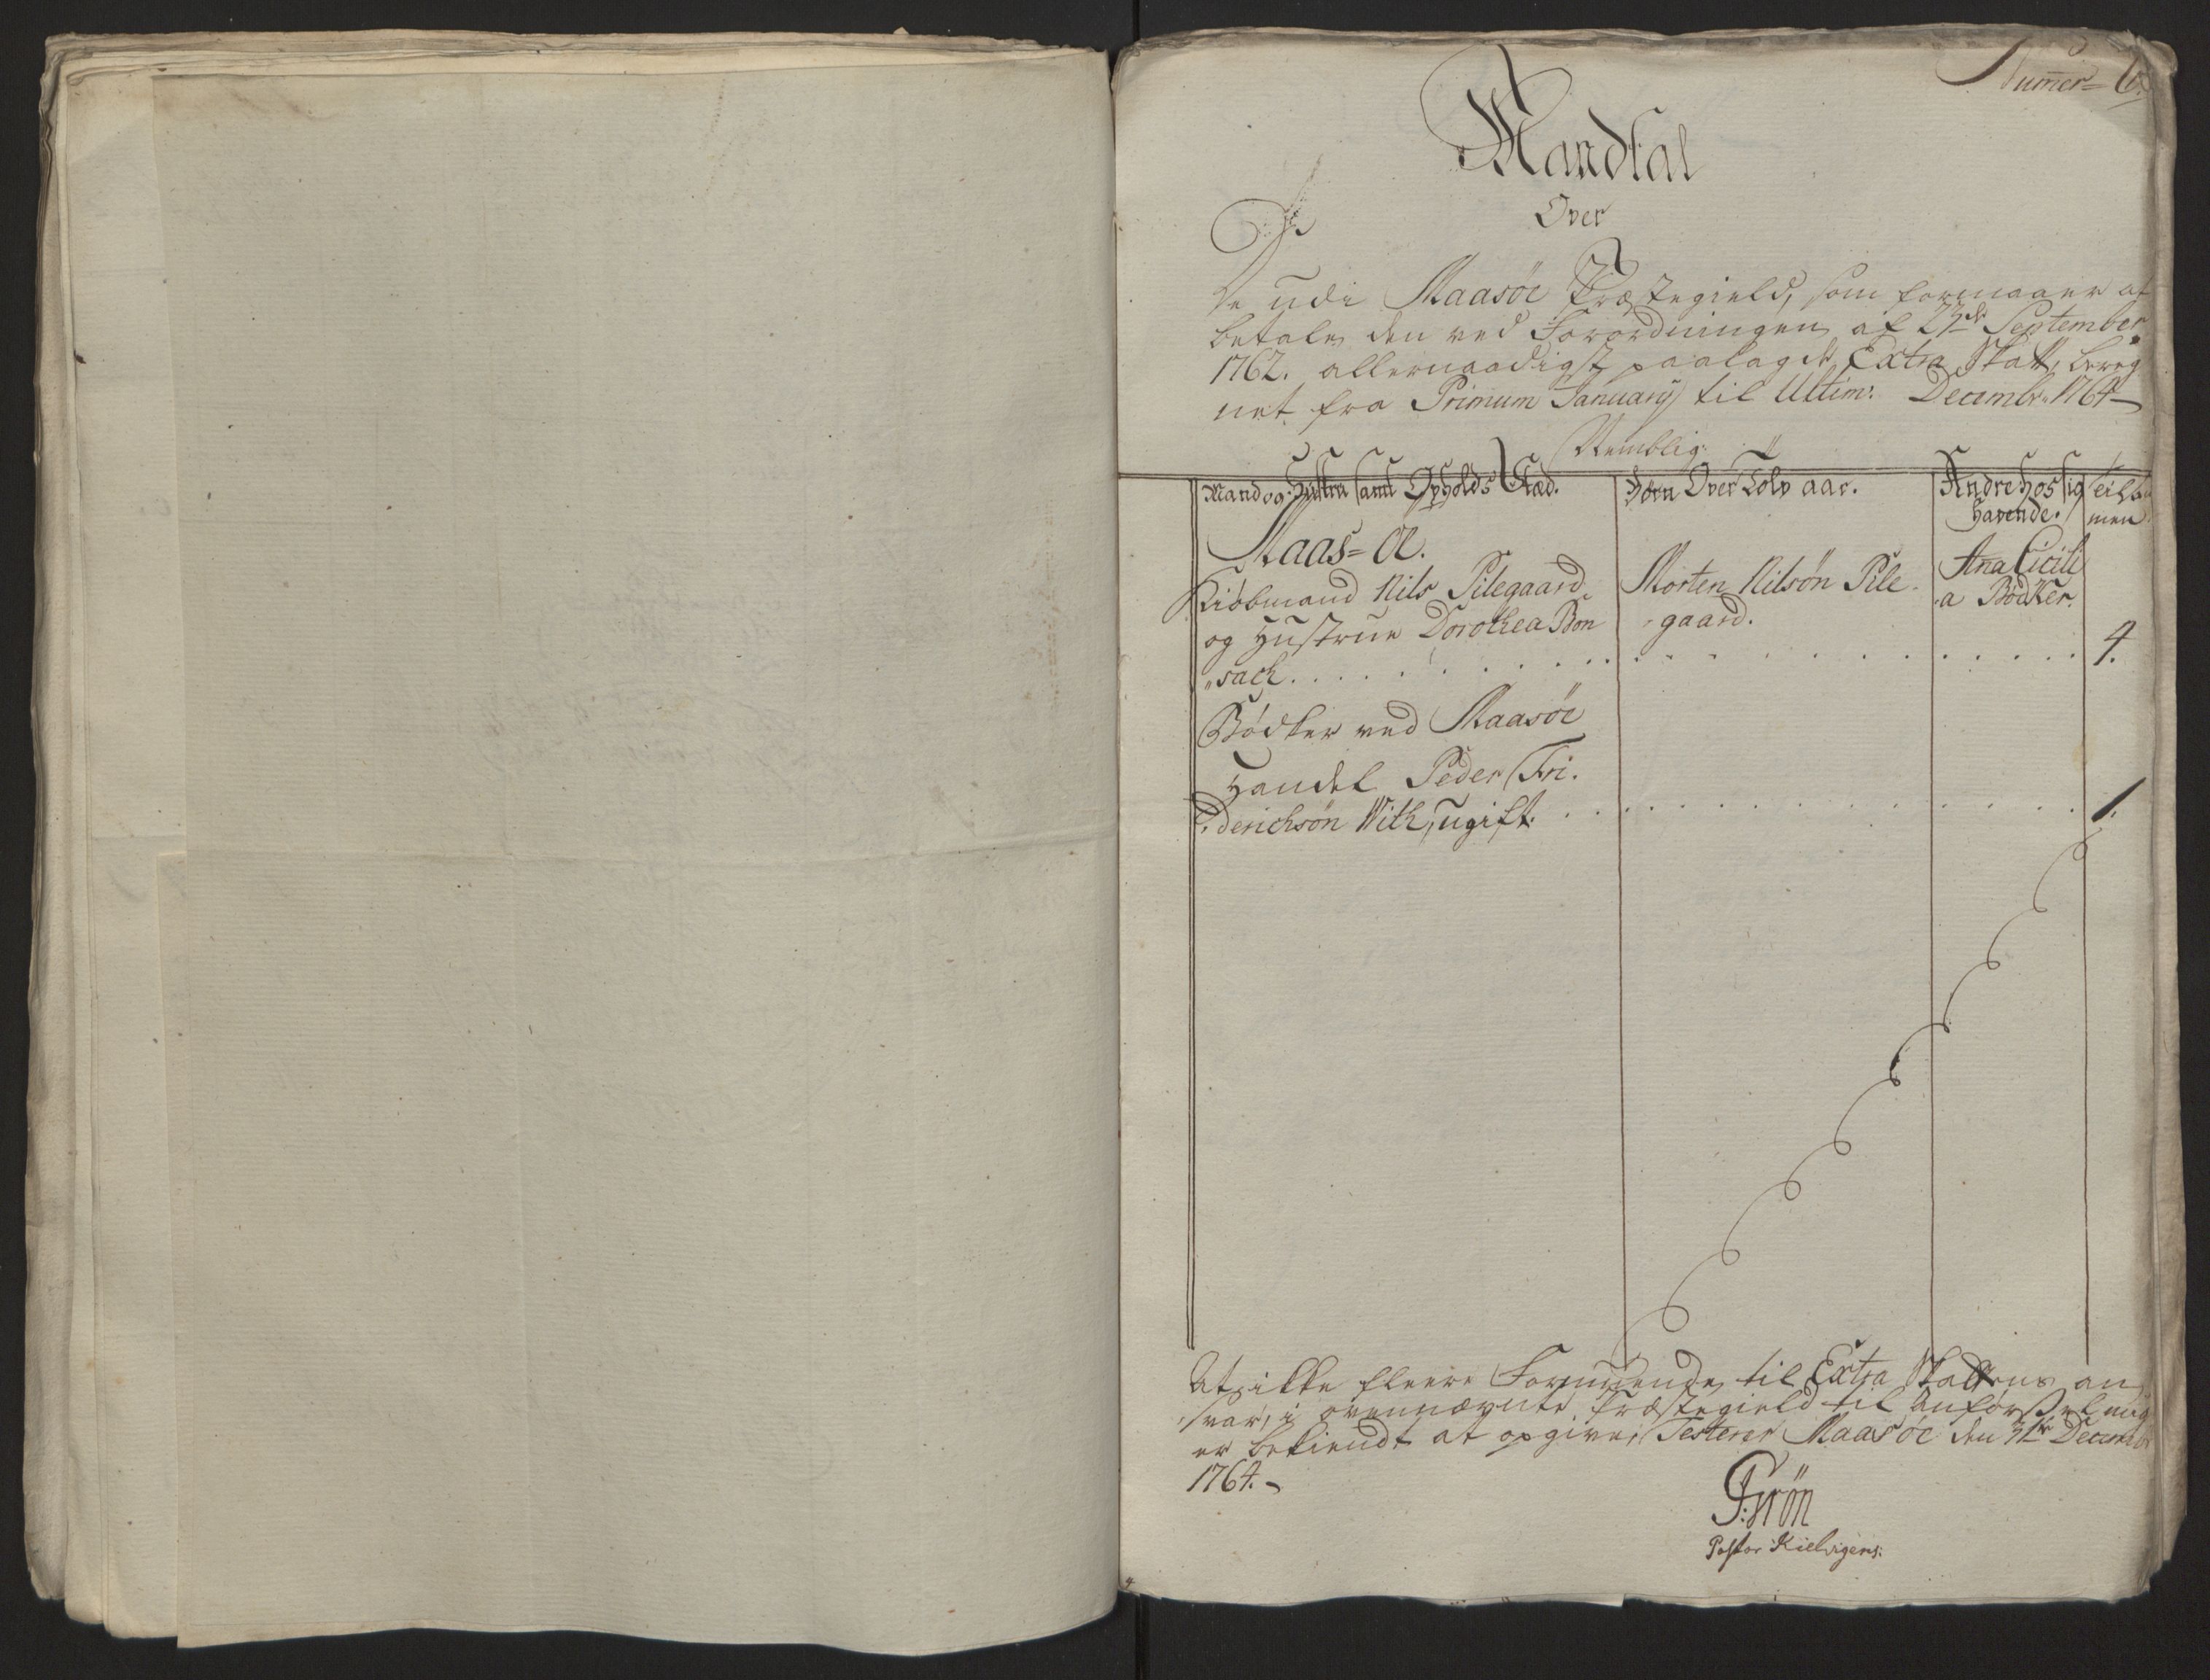 Numer= 6.
Mandtal
Over
De udi Maasøe Præstegield, som formaaer at
betale den ved Forordningen af 23de September
1762. allernaadigst paalagde Extra Skatt, bereg
net fra Primum Januarij til Ultim: Decembr. 1764
Nemblig:
Mand og Hustru samt Opholds Stæd.
Børn Over Tolv aar.
Andre hos sig havende.
Tilsa
men
Maas=Øe.
Kiøbmand Nils Pilegaard
og Hustrue Dorothea Bon
„sach.
Morten Nilsøn Pile
-gaard.
Ana Cicili
a Bødker.
4.
Bødker ved Maasøe
Handel Peder Fri-
derichsøn With, ugift.
1.
At ikke fleere Formuende til Extra Skattens an
svar, i ovennævnte Præstegield til Anførsel mig
er bekiendt at opgive, Testerer Maasøe den 31te Decembr
1764.-
P: Frøn
Pastor Kielvigens: